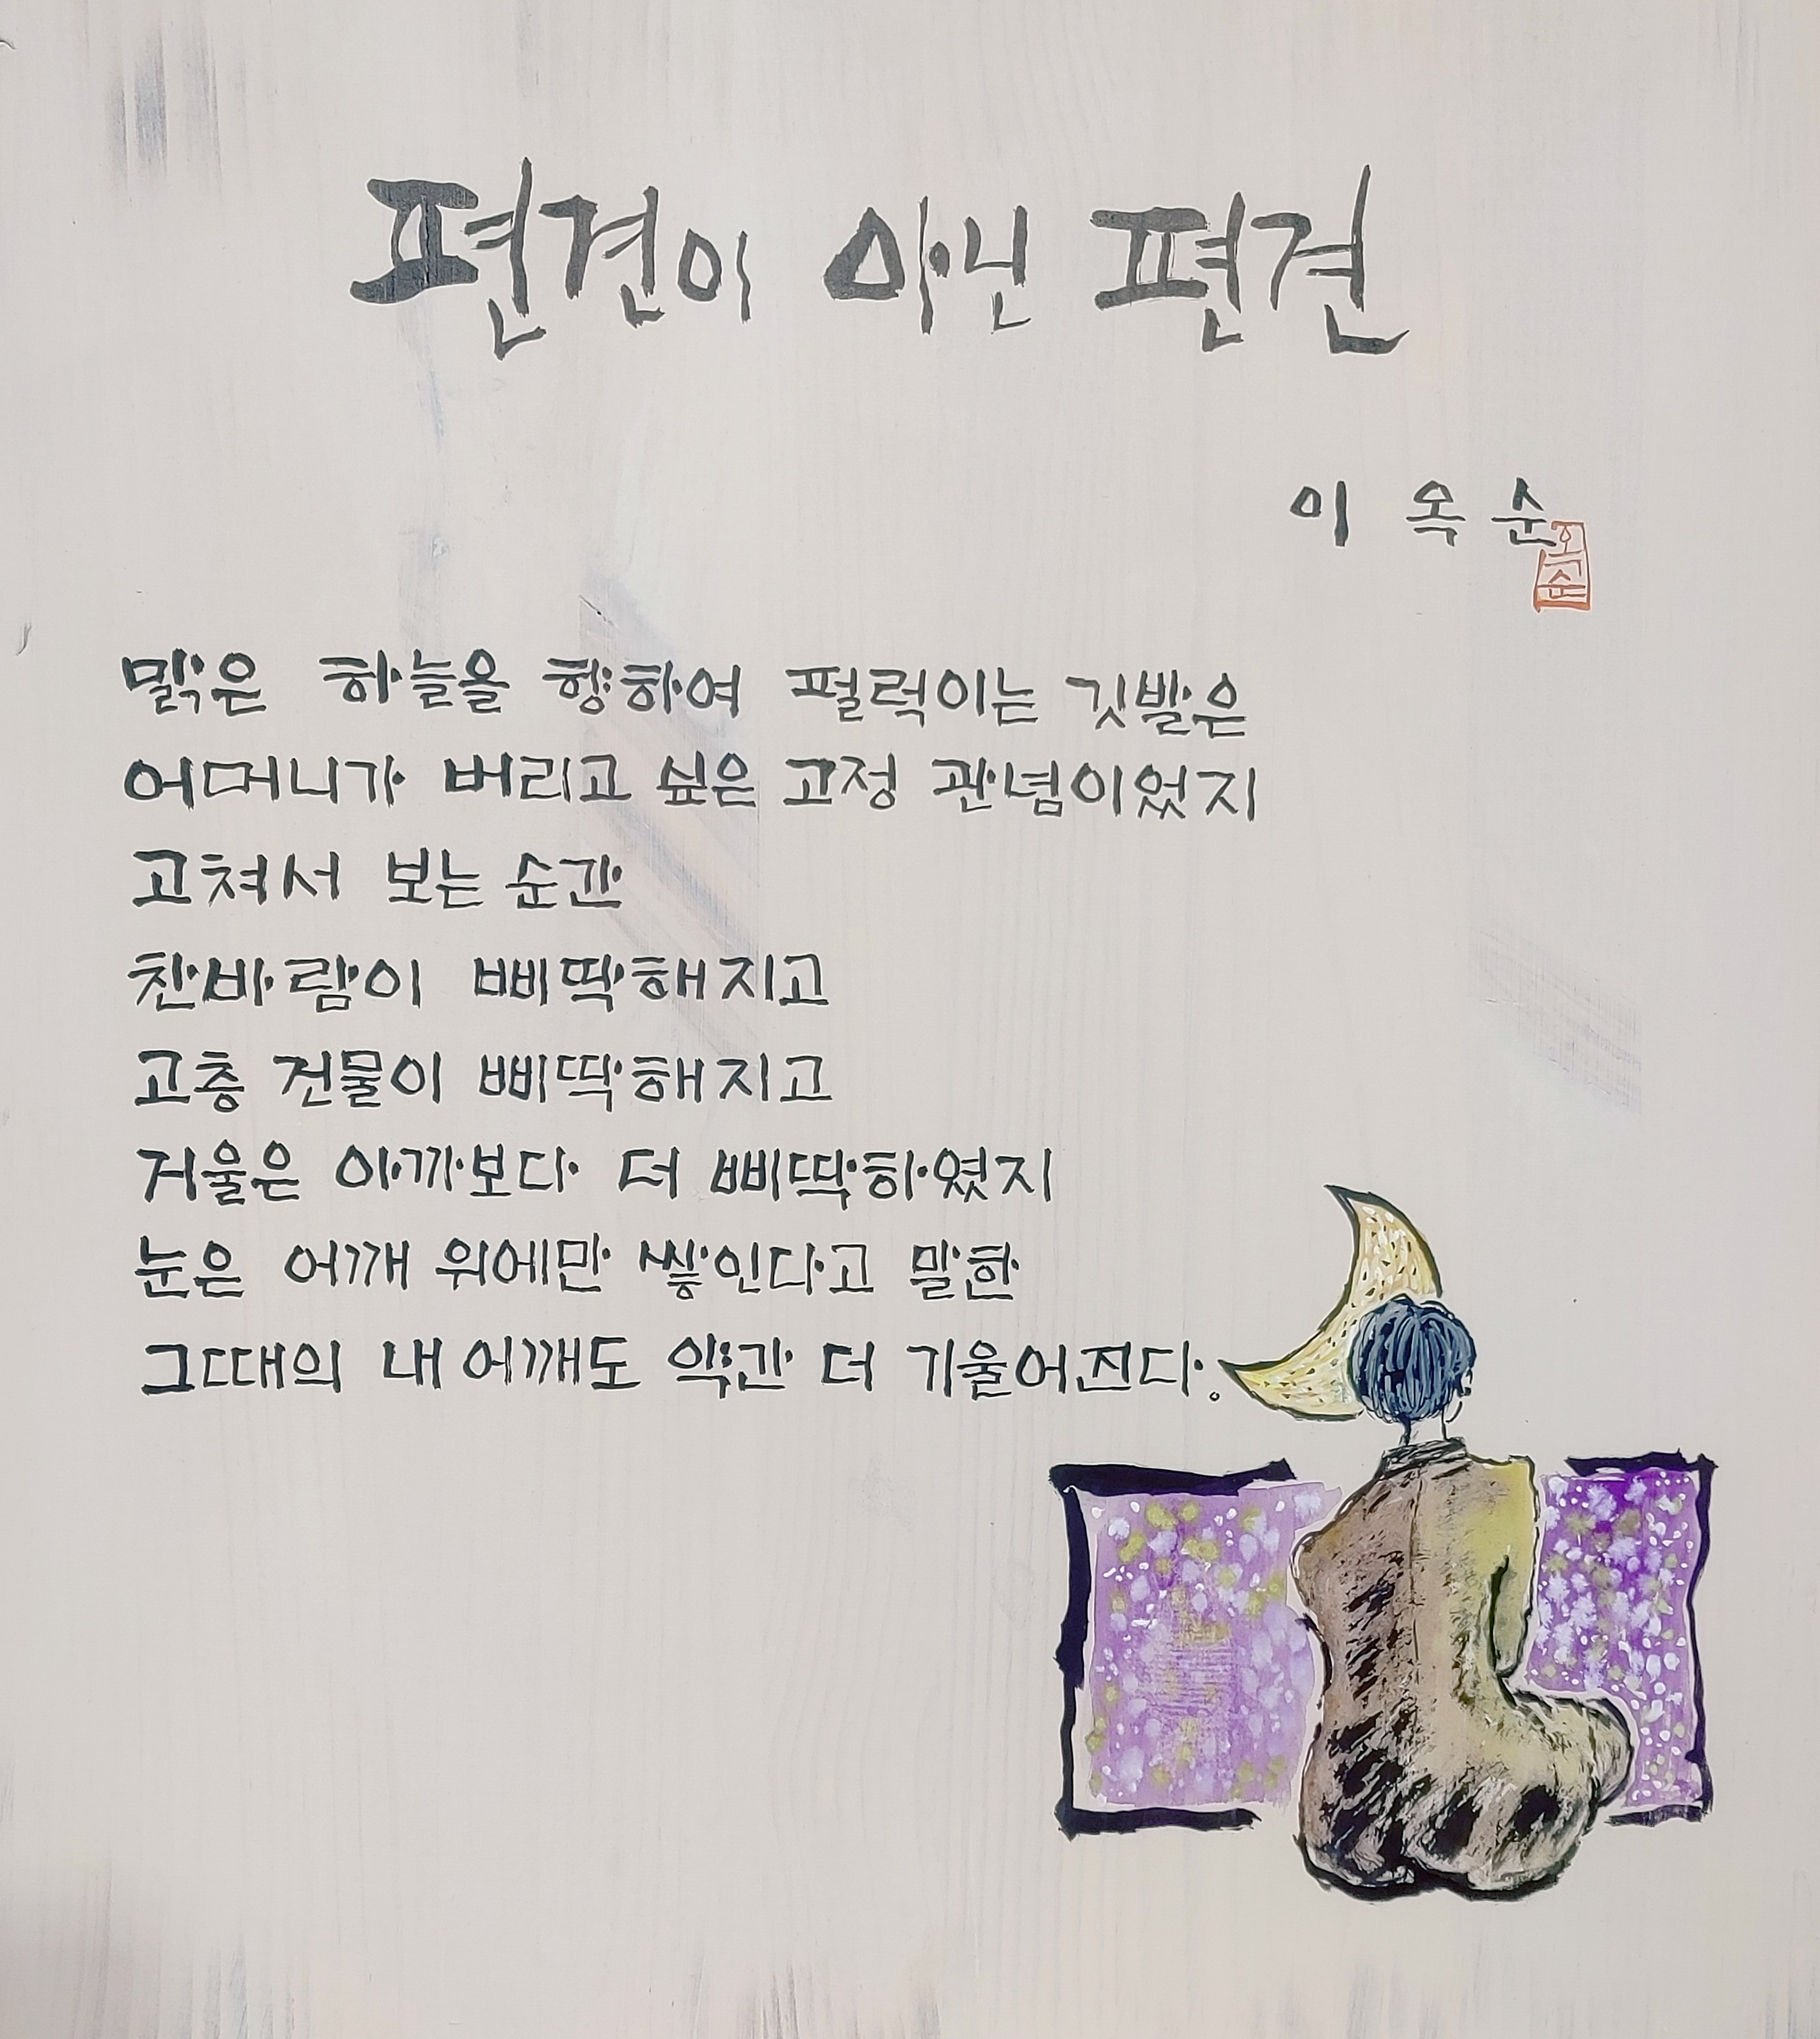 편견이 아닌 편견
이 옥 순
옥
순
맑은 하늘을 향하여 펄럭이는 깃발은
어머니가 버리고 싶은 고정 관념이었지
고쳐서 보는 순간
찬바람이 삐딱해지고
고층 건물이 삐딱해지고
거울은 아까보다 더 삐딱하였지
눈은 어깨 위에만 쌓인다고 말한
그때의 내 어깨도 약간 더 기울어진다.